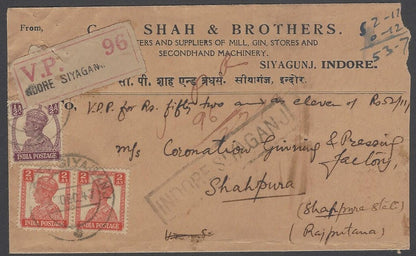 From,
SHAH & BROTHERS.
ERS AND SUPPLIERS OF MILL, GIN, STORES AND
SECONDHAND MACHINERY.
SIYAGUNJ, INDORE.
V.P. 96
INDORE SIYAGANJ
सी. पी. शाह एन्ड ब्रोधर्स, सीयागंज, इन्दोर.
5 2-11
0-12
53-7
TO, V.P.P. for Rs. fifty two and as eleven of Rs 52/11/
96
M/s Coronation Ginning & Pressing
Factory
Shahpura
(Shahpura State)
(Rajputana)
INDORE SIYAGANJ
INDIA POSTAGE
INDIA POSTAGE
INDIA POSTAGE
SIYAGANJ